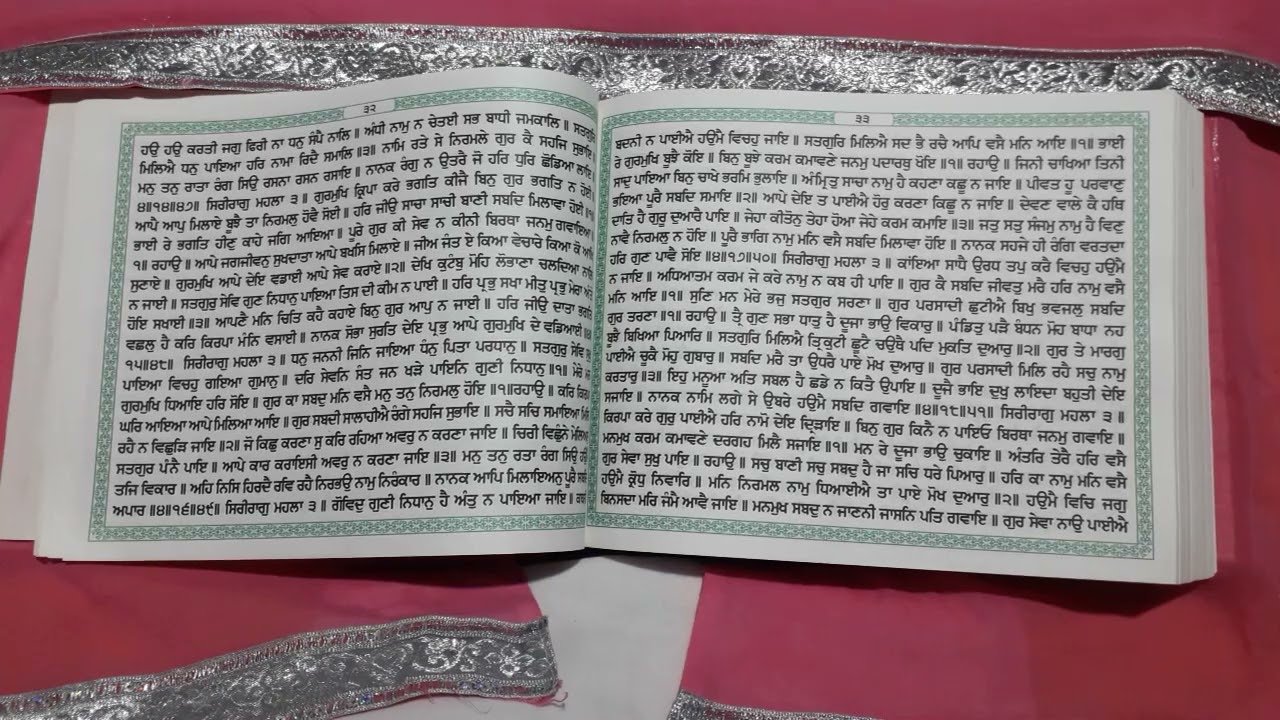 ੩੨
ਹਉ ਹਉ ਕਰਤੀ ਜਗੁ ਫਿਰੀ ਨਾ ਧਨੁ ਸੰਪੈ ਨਾਲਿ ॥ ਅੰਧੀ ਨਾਮੁ ਨ ਚੇਤਈ ਸਭ ਬਾਧੀ ਜਮਕਾਲਿ ॥ ਸਤਗੁਰਿ
ਮਿਲਿਐ ਧਨੁ ਪਾਇਆ ਹਰਿ ਨਾਮਾ ਰਿਦੈ ਸਮਾਲਿ ॥੩॥ ਨਾਮਿ ਰਤੇ ਸੇ ਨਿਰਮਲੇ ਗੁਰ ਕੈ ਸਹਜਿ ਸੁਭਾਇ ॥
ਮਨੁ ਤਨੁ ਰਾਤਾ ਰੰਗ ਸਿਉ ਰਸਨਾ ਰਸਨ ਰਸਾਇ ॥ ਨਾਨਕ ਰੰਗੁ ਨ ਉਤਰੈ ਜੋ ਹਰਿ ਧੁਰਿ ਛੋਡਿਆ ਲਾਇ ॥
੪॥੧੪॥੪੭॥ ਸਿਰੀਰਾਗੁ ਮਹਲਾ ੩ ॥ ਗੁਰਮੁਖਿ ਕ੍ਰਿਪਾ ਕਰੇ ਭਗਤਿ ਕੀਜੈ ਬਿਨੁ ਗੁਰ ਭਗਤਿ ਨ ਹੋਈ
ਆਪੈ ਆਪੁ ਮਿਲਾਏ ਬੂਝੈ ਤਾ ਨਿਰਮਲੁ ਹੋਵੈ ਸੋਈ ॥ ਹਰਿ ਜੀਉ ਸਾਚਾ ਸਾਚੀ ਬਾਣੀ ਸਬਦਿ ਮਿਲਾਵਾ ਹੋਈ
ਭਾਈ ਰੇ ਭਗਤਿ ਹੀਣੁ ਕਾਹੇ ਜਗਿ ਆਇਆ ॥ ਪੂਰੇ ਗੁਰ ਕੀ ਸੇਵ ਨ ਕੀਨੀ ਬਿਰਥਾ ਜਨਮੁ ਗਵਾਇਆ
੧॥ ਰਹਾਉ ॥ ਆਪੇ ਜਗਜੀਵਨੁ ਸੁਖਦਾਤਾ ਆਪੇ ਬਖਸਿ ਮਿਲਾਏ ॥ ਜੀਅ ਜੰਤ ਏ ਕਿਆ ਵੇਚਾਰੇ ਕਿਆ ਕੋ ਆਖਿ
ਸੁਣਾਏ ॥ ਗੁਰਮੁਖਿ ਆਪੇ ਦੇਇ ਵਡਾਈ ਆਪੇ ਸੇਵ ਕਰਾਏ ॥੨॥ ਦੇਖਿ ਕੁਟੰਬੁ ਮੋਹਿ ਲੋਭਾਣਾ ਚਲਦਿਆ ਨਾਲਿ
ਨ ਜਾਈ ॥ ਸਤਗੁਰੁ ਸੇਵਿ ਗੁਣ ਨਿਧਾਨੁ ਪਾਇਆ ਤਿਸ ਦੀ ਕੀਮ ਨ ਪਾਈ ॥ ਹਰਿ ਪ੍ਰਭੁ ਸਖਾ ਮੀਤੁ ਪ੍ਰਭੁ ਮੇਰਾ ਅੰਤੇ
ਹੋਇ ਸਖਾਈ ॥੩॥ ਆਪਣੈ ਮਨਿ ਚਿਤਿ ਕਹੈ ਕਹਾਏ ਬਿਨੁ ਗੁਰ ਆਪੁ ਨ ਜਾਈ ॥ ਹਰਿ ਜੀਉ ਦਾਤਾ ਭਗਤਿ
ਵਛਲੁ ਹੈ ਕਰਿ ਕਿਰਪਾ ਮੰਨਿ ਵਸਾਈ ॥ ਨਾਨਕ ਸੋਭਾ ਸੁਰਤਿ ਦੇਇ ਪ੍ਰਭੁ ਆਪੇ ਗੁਰਮੁਖਿ ਦੇ ਵਡਿਆਈ ॥੪॥
੧੫॥੪੮॥ ਸਿਰੀਰਾਗੁ ਮਹਲਾ ੩ ॥ ਧਨੁ ਜਨਨੀ ਜਿਨਿ ਜਾਇਆ ਧੰਨੁ ਪਿਤਾ ਪਰਧਾਨੁ ॥ ਸਤਗੁਰੁ ਸੇਵਿ ਸੁਖੁ
ਪਾਇਆ ਵਿਚਹੁ ਗਇਆ ਗੁਮਾਨੁ ॥ ਦਰਿ ਸੇਵਨਿ ਸੰਤ ਜਨ ਖੜੇ ਪਾਇਨਿ ਗੁਣੀ ਨਿਧਾਨੁ ॥੧॥ ਮੇਰੇ ਮਨ
ਗੁਰਮੁਖਿ ਧਿਆਇ ਹਰਿ ਸੋਇ ॥ ਗੁਰ ਕਾ ਸਬਦੁ ਮਨਿ ਵਸੈ ਮਨੁ ਤਨੁ ਨਿਰਮਲੁ ਹੋਇ ॥੧॥ਰਹਾਉ॥ ਕਰਿ ਕਿਰਪਾ
ਘਰਿ ਆਇਆ ਆਪੇ ਮਿਲਿਆ ਆਇ ॥ ਗੁਰ ਸਬਦੀ ਸਾਲਾਹੀਐ ਰੰਗੇ ਸਹਜਿ ਸੁਭਾਇ ॥ ਸਚੈ ਸਚਿ ਸਮਾਇਆ ਮਿਲਿ
ਰਹੈ ਨ ਵਿਛੁੜਿ ਜਾਇ ॥੨॥ ਜੋ ਕਿਛੁ ਕਰਣਾ ਸੁ ਕਰਿ ਰਹਿਆ ਅਵਰੁ ਨ ਕਰਣਾ ਜਾਇ ॥ ਚਿਰੀ ਵਿਛੁੰਨੇ ਮੇਲਿਅਨੁ
ਸਤਗੁਰ ਪੰਨੈ ਪਾਇ ॥ ਆਪੇ ਕਾਰ ਕਰਾਇਸੀ ਅਵਰੁ ਨ ਕਰਣਾ ਜਾਇ ॥੩॥ ਮਨੁ ਤਨੁ ਰਤਾ ਰੰਗ ਸਿਉ ਹਉਮੈ
ਤਜਿ ਵਿਕਾਰ ॥ ਅਹਿ ਨਿਸਿ ਹਿਰਦੈ ਰਵਿ ਰਹੈ ਨਿਰਭਉ ਨਾਮੁ ਨਿਰੰਕਾਰ ॥ ਨਾਨਕ ਆਪਿ ਮਿਲਾਇਅਨੁ ਪੂਰੈ ਸਬਦਿ
ਅਪਾਰ ॥੪॥੧੬॥੪੯॥ ਸਿਰੀਰਾਗੁ ਮਹਲਾ ੩ ॥ ਗੋਵਿਦੁ ਗੁਣੀ ਨਿਧਾਨੁ ਹੈ ਅੰਤੁ ਨ ਪਾਇਆ ਜਾਇ ॥ ਕਥਨੀ
੩੩
ਬਦਨੀ ਨ ਪਾਈਐ ਹਉਮੈ ਵਿਚਹੁ ਜਾਇ ॥ ਸਤਗੁਰਿ ਮਿਲਿਐ ਸਦ ਭੈ ਰਚੈ ਆਪਿ ਵਸੈ ਮਨਿ ਆਇ ॥੧॥ ਭਾਈ
ਰੇ ਗੁਰਮੁਖਿ ਬੂਝੈ ਕੋਇ ॥ ਬਿਨੁ ਬੂਝੇ ਕਰਮ ਕਮਾਵਣੇ ਜਨਮੁ ਪਦਾਰਥੁ ਖੋਇ ॥੧॥ ਰਹਾਉ ॥ ਜਿਨੀ ਚਾਖਿਆ ਤਿਨੀ
ਸਾਦੁ ਪਾਇਆ ਬਿਨੁ ਚਾਖੇ ਭਰਮਿ ਭੁਲਾਇ ॥ ਅੰਮ੍ਰਿਤੁ ਸਾਚਾ ਨਾਮੁ ਹੈ ਕਹਣਾ ਕਛੂ ਨ ਜਾਇ ॥ ਪੀਵਤ ਹੂ ਪਰਵਾਣੁ
ਭਇਆ ਪੂਰੈ ਸਬਦਿ ਸਮਾਇ ॥੨॥ ਆਪੇ ਦੇਇ ਤ ਪਾਈਐ ਹੋਰੁ ਕਰਣਾ ਕਿਛੂ ਨ ਜਾਇ ॥ ਦੇਵਣ ਵਾਲੇ ਕੈ ਹਥਿ
ਦਾਤਿ ਹੈ ਗੁਰੂ ਦੁਆਰੈ ਪਾਇ ॥ ਜੇਹਾ ਕੀਤੋਨੁ ਤੇਹਾ ਹੋਆ ਜੇਹੇ ਕਰਮ ਕਮਾਇ ॥੩॥ ਜਤੁ ਸਤੁ ਸੰਜਮੁ ਨਾਮੁ ਹੈ ਵਿਣੁ
ਨਾਵੈ ਨਿਰਮਲੁ ਨ ਹੋਇ ॥ ਪੂਰੈ ਭਾਗਿ ਨਾਮੁ ਮਨਿ ਵਸੈ ਸਬਦਿ ਮਿਲਾਵਾ ਹੋਇ ॥ ਨਾਨਕ ਸਹਜੇ ਹੀ ਰੰਗਿ ਵਰਤਦਾ
ਹਰਿ ਗੁਣ ਪਾਵੈ ਸੋਇ ॥੪॥੧੭॥੫੦॥ ਸਿਰੀਰਾਗੁ ਮਹਲਾ ੩ ॥ ਕਾਂਇਆ ਸਾਧੈ ਉਰਧ ਤਪੁ ਕਰੈ ਵਿਚਹੁ ਹਉਮੈ
ਨ ਜਾਇ ॥ ਅਧਿਆਤਮ ਕਰਮ ਜੇ ਕਰੇ ਨਾਮੁ ਨ ਕਬ ਹੀ ਪਾਇ ॥ ਗੁਰ ਕੈ ਸਬਦਿ ਜੀਵਤੁ ਮਰੈ ਹਰਿ ਨਾਮੁ ਵਸੈ
ਮਨਿ ਆਇ ॥੧॥ ਸੁਣਿ ਮਨ ਮੇਰੇ ਭਜੁ ਸਤਗੁਰ ਸਰਣਾ ॥ ਗੁਰ ਪਰਸਾਦੀ ਛੁਟੀਐ ਬਿਖੁ ਭਵਜਲੁ ਸਬਦਿ
ਗੁਰ ਤਰਣਾ ॥੧॥ ਰਹਾਉ ॥ ਤ੍ਰੈ ਗੁਣ ਸਭਾ ਧਾਤੁ ਹੈ ਦੂਜਾ ਭਾਉ ਵਿਕਾਰੁ ॥ ਪੰਡਿਤੁ ਪੜੈ ਬੰਧਨ ਮੋਹ ਬਾਧਾ ਨਹ
ਬੂਝੈ ਬਿਖਿਆ ਪਿਆਰਿ ॥ ਸਤਗੁਰਿ ਮਿਲਿਐ ਤ੍ਰਿਕੁਟੀ ਛੂਟੈ ਚਉਥੈ ਪਦਿ ਮੁਕਤਿ ਦੁਆਰੁ ॥੨॥ ਗੁਰ ਤੇ ਮਾਰਗੁ
ਪਾਈਐ ਚੂਕੈ ਮੋਹੁ ਗੁਬਾਰੁ ॥ ਸਬਦਿ ਮਰੈ ਤਾ ਉਧਰੈ ਪਾਏ ਮੋਖ ਦੁਆਰੁ ॥ ਗੁਰ ਪਰਸਾਦੀ ਮਿਲਿ ਰਹੈ ਸਚੁ ਨਾਮੁ
ਕਰਤਾਰੁ ॥੩॥ ਇਹੁ ਮਨੂਆ ਅਤਿ ਸਬਲ ਹੈ ਛਡੇ ਨ ਕਿਤੈ ਉਪਾਇ ॥ ਦੂਜੈ ਭਾਇ ਦੁਖੁ ਲਾਇਦਾ ਬਹੁਤੀ ਦੇਇ
ਸਜਾਇ ॥ ਨਾਨਕ ਨਾਮਿ ਲਗੇ ਸੇ ਉਬਰੇ ਹਉਮੈ ਸਬਦਿ ਗਵਾਇ ॥੪॥੧੮॥੫੧॥ ਸਿਰੀਰਾਗੁ ਮਹਲਾ ੩ ॥
ਕਿਰਪਾ ਕਰੇ ਗੁਰੁ ਪਾਈਐ ਹਰਿ ਨਾਮੋ ਦੇਇ ਦ੍ਰਿੜਾਇ ॥ ਬਿਨੁ ਗੁਰ ਕਿਨੈ ਨ ਪਾਇਓ ਬਿਰਥਾ ਜਨਮੁ ਗਵਾਇ ॥
ਮਨਮੁਖ ਕਰਮ ਕਮਾਵਣੇ ਦਰਗਹ ਮਿਲੈ ਸਜਾਇ ॥੧॥ ਮਨ ਰੇ ਦੂਜਾ ਭਾਉ ਚੁਕਾਇ ॥ ਅੰਤਰਿ ਤੇਰੈ ਹਰਿ ਵਸੈ
ਗੁਰ ਸੇਵਾ ਸੁਖੁ ਪਾਇ ॥ ਰਹਾਉ ॥ ਸਚੁ ਬਾਣੀ ਸਚੁ ਸਬਦੁ ਹੈ ਜਾ ਸਚਿ ਧਰੇ ਪਿਆਰੁ ॥ ਹਰਿ ਕਾ ਨਾਮੁ ਮਨਿ ਵਸੈ
ਹਉਮੈ ਕ੍ਰੋਧੁ ਨਿਵਾਰਿ ॥ ਮਨਿ ਨਿਰਮਲ ਨਾਮੁ ਧਿਆਈਐ ਤਾ ਪਾਏ ਮੋਖ ਦੁਆਰੁ ॥੨॥ ਹਉਮੈ ਵਿਚਿ ਜਗੁ
ਬਿਨਸਦਾ ਮਰਿ ਜੰਮੈ ਆਵੈ ਜਾਇ ॥ ਮਨਮੁਖ ਸਬਦੁ ਨ ਜਾਣਨੀ ਜਾਸਨਿ ਪਤਿ ਗਵਾਇ ॥ ਗੁਰ ਸੇਵਾ ਨਾਉ ਪਾਈਐ